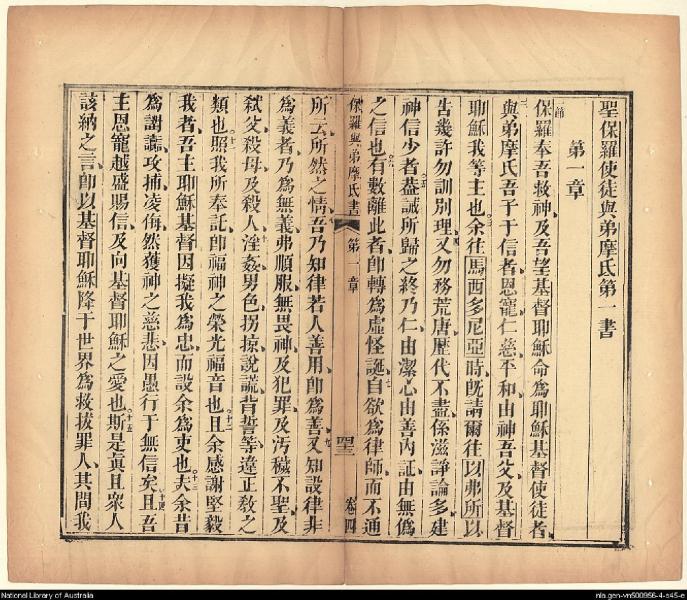 聖保羅使徒與弟摩氏第一書
第一章
保羅奉吾救神及吾望基督耶穌命為耶穌基督使徒者
與弟摩氏吾子于信者恩寵仁慈平和由神吾父及基督
耶穌我等主也余往馬西多尼亞時既請爾住以弗所以
告幾許勿訓別理又勿務荒唐歷代不盡係滋諍論多建
神信少者葢誡所歸之終乃仁由潔心由善內証由無僞
之信也有數離此者即轉為虛怪誕自欲為律師而不通
保羅與弟摩氏書 第一章 聖 卷四
所云所然之情吾乃知律若人善用即為善又知設律非
為義者乃為無義弗順服無畏神及犯罪及汚穢不聖及
弒父殺母及殺人淫姦男色拐掠說謊背誓等違正教之
類也照我所奉託即福神之榮光福音也且余感謝堅毅
我者吾主耶穌基督因擬我為忠而設余為吏也夫余昔
為謝讟攻捕凌侮然獲神之慈悲因愚行于無信矣且吾
主恩寵越盛賜信及向基督耶穌之愛也斯是真且衆人
該納之言即以基督耶穌降于世界為救拔罪人其間我
National Library of Australia
nla.gen-vn500956-4-s45-e